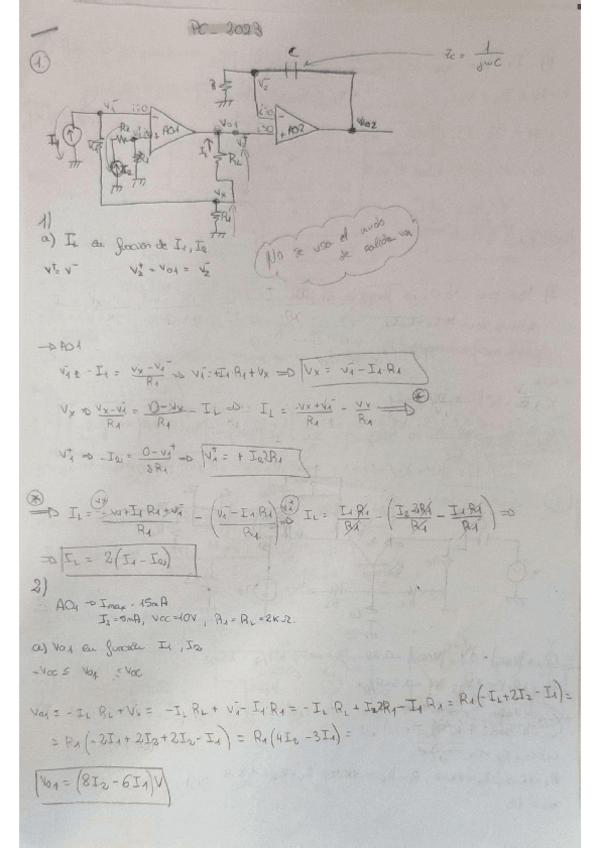 PC - 2023
1.
C
Zc = 1/jωC
R
V2⁻
i=0
V1⁻ i=0
AO1
VO1
i=0
AO2
VO2
I1
R1
R2
I2
IL
RL
Vx
R1
1)
a) IL en función de I1, I2
V⁺= V⁻ V2⁺ = VO1 = V2⁻
No se usa el nudo de salida
→ AO1
V1⁻: -I1 = (Vx-V1⁻)/R1 ⇒ V1⁻ = +I1R1+Vx ⇒ Vx = V1⁻ - I1R1
Vx ⇒ (Vx-V1⁻)/R1 = (0-Vx)/R1 - IL ⇒ IL = (-Vx+V1⁻)/R1 - Vx/R1 ⇒ *
V1⁺ ⇒ -I2 = (0-V1⁺)/2R1 ⇒ V1⁺ = + I2 2R1
* ⇒ IL = (-V1⁻+I1R1+V1⁻)/R1 - ((V1⁻-I1R1)/R1) ⇒ IL = I1R1/R1 - (I2 2R1/R1 - I1R1/R1) ⇒
⇒ IL = 2(I1 - I2)
2)
AO1 → Imax = 15mA
I2 = 5mA, VCC = 10V, R1 = RL = 2kΩ.
a) VO1 en función I1, I2
-VCC ≤ VO1 ≤ VCC
VO1 = -IL RL + Vx = -IL RL + V1⁻ - I1R1 = -IL RL + I2 2R1 - I1R1 = R1(-IL+2I2-I1) =
= R1(-2I1+2I2+2I2-I1) = R1(4I2-3I1) =
VO1 = (8I2 - 6I1)V